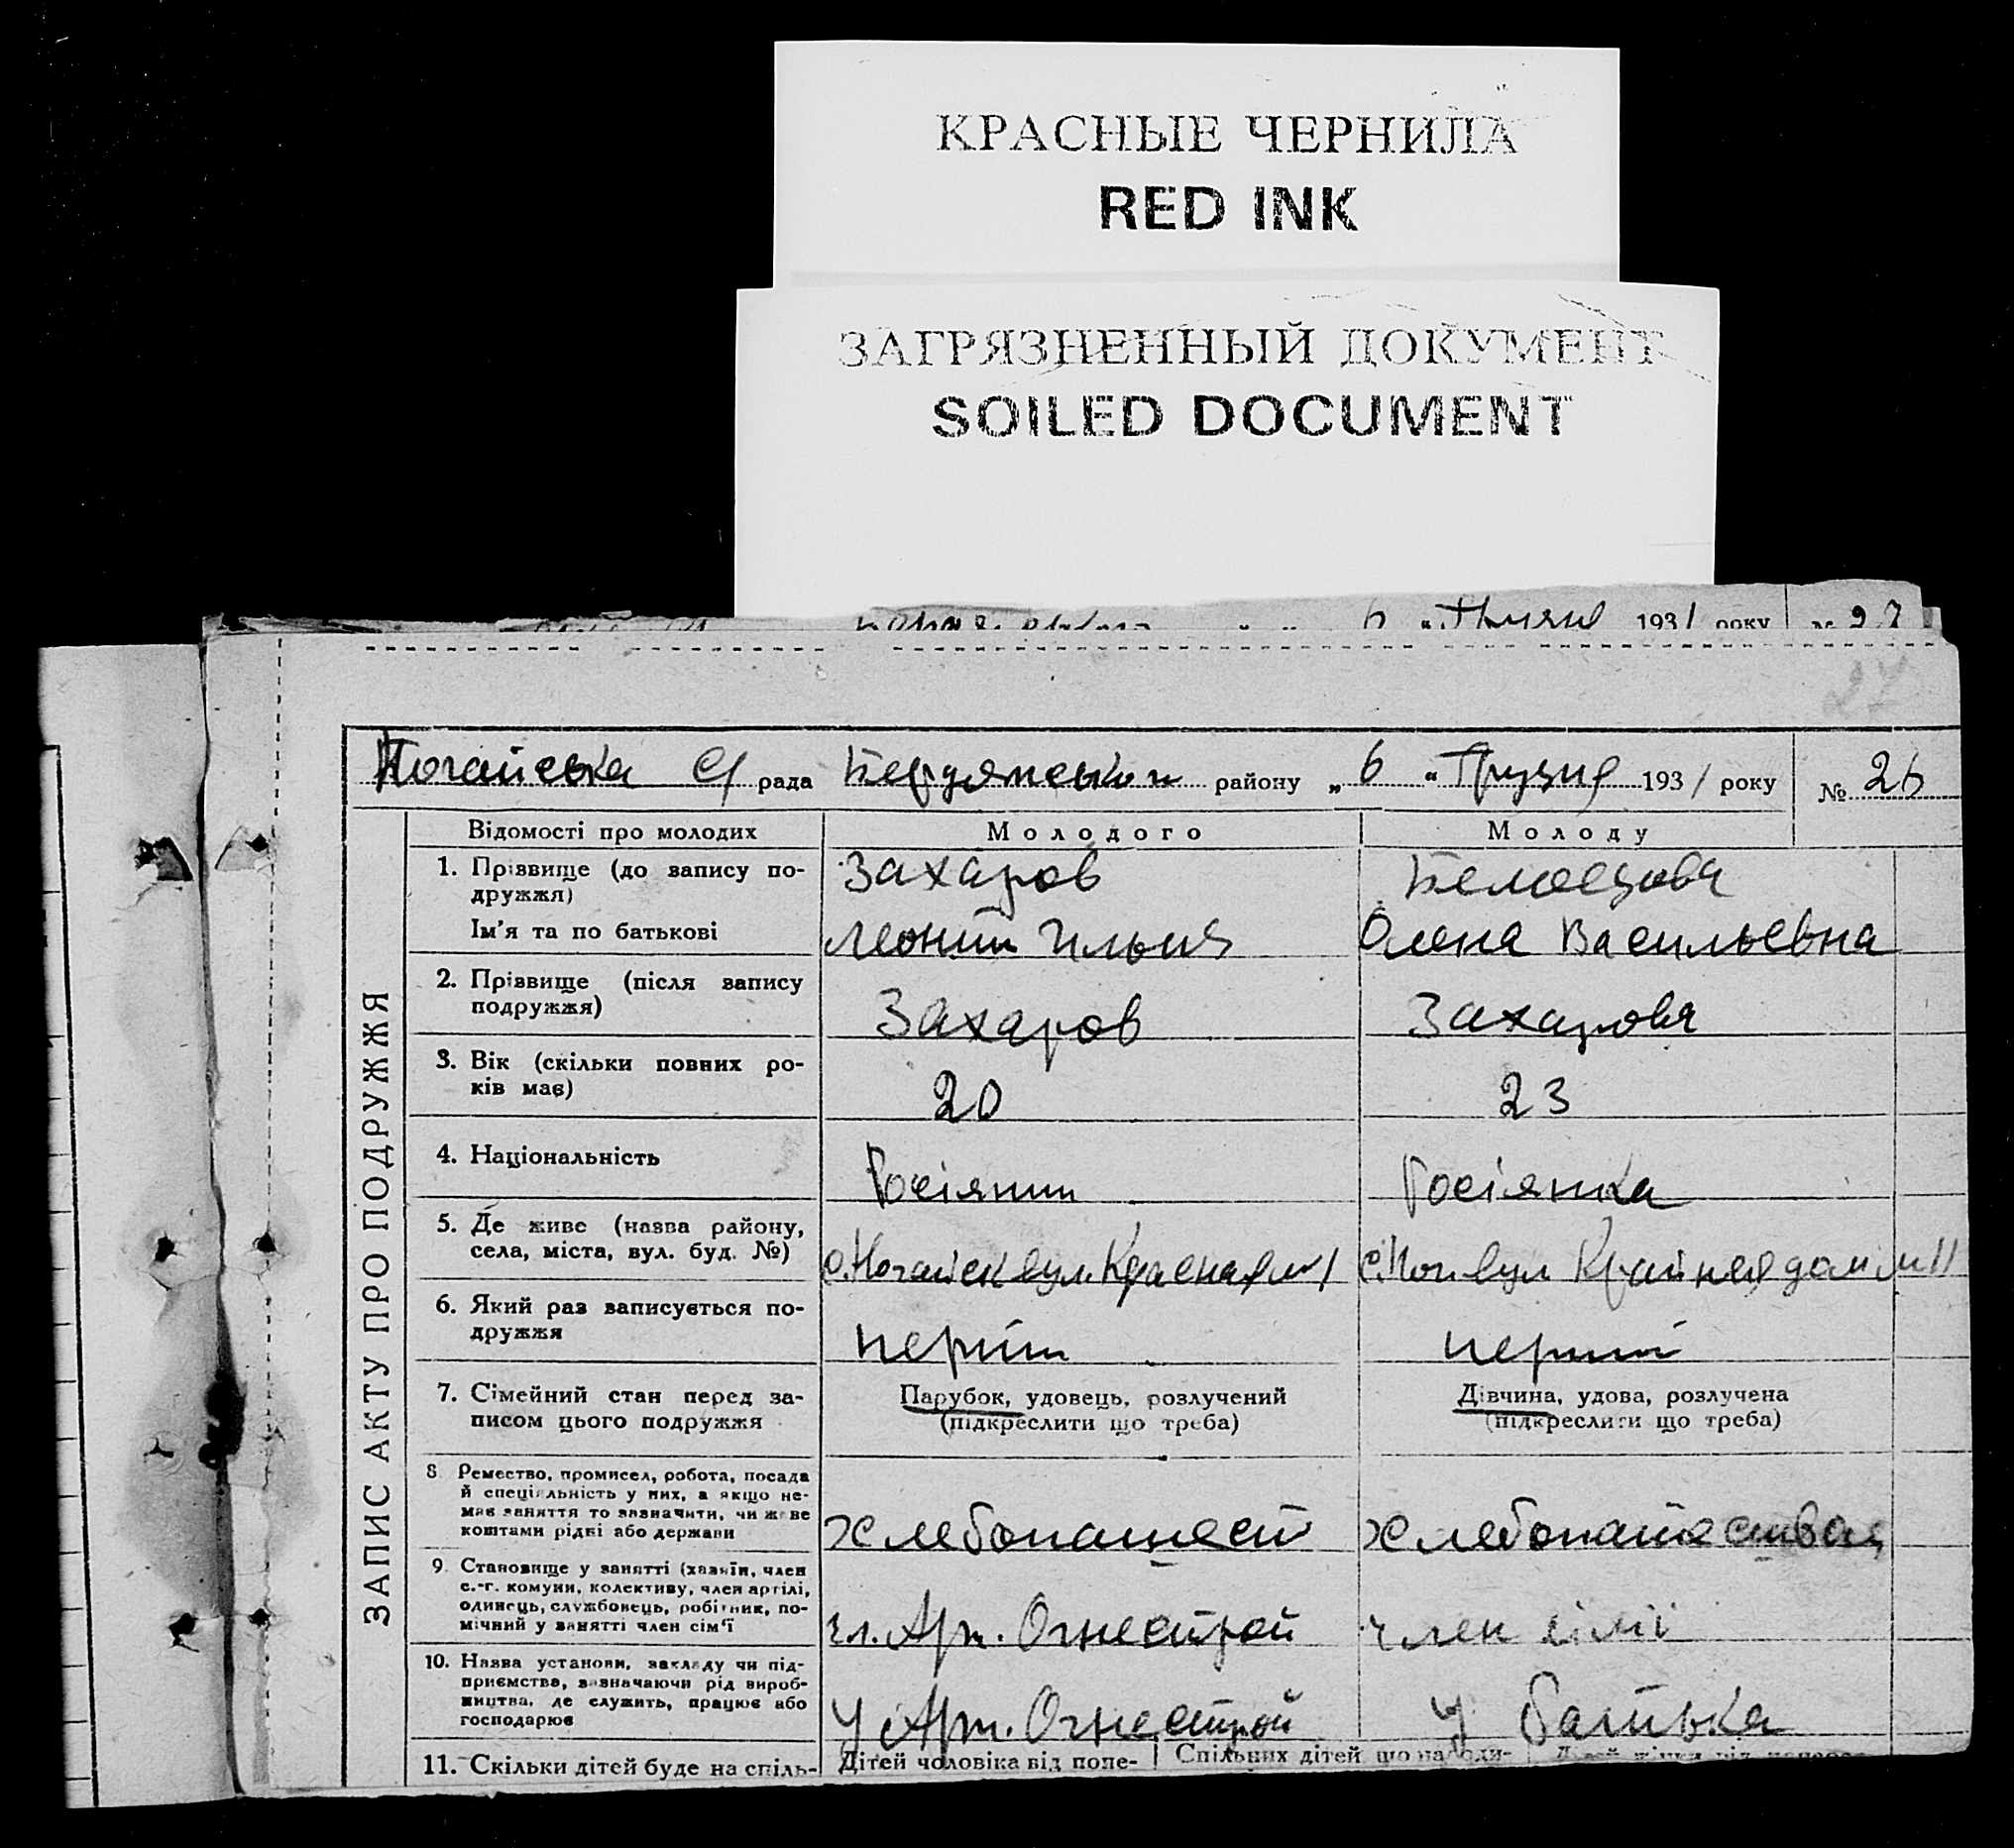 КРАСНЫЕ ЧЕРНИЛА
RED INK
ЗАГРЯЗНЕННЫЙ ДОКУМЕНТ
SOILED DOCUMENT
6 " Грузня 1931 року № 27
27
Ногайська с/ рада Бердянського району „ 6 " Грузня 1931 року № 26
ЗАПИС АКТУ ПРО ПОДРУЖЖЯ
Відомості про молодих Молодого Молоду
1. Прізвище (до запису по-
дружжя) Захаров
Ім'я та по батькові Илья Олена Васильевна
2. Прізвище (після запису
подружжя) Захаров Захарова
3. Вік (скільки повних ро-
ків має) 20 23
4. Національність Росіянин Росіянка
5. Де живе (назва району,
села, міста, вул. буд. №) с. Ногайск вул. Красная № 1 с. Ног. вул Крайняя дом № 11
6. Який раз записується по-
дружжя перший перший
7. Сімейний стан перед за-
писом цього подружжя
Парубок, удовець, розлучений
(підкреслити що треба)
Дівчина, удова, розлучена
(підкреслити що треба)
8 Ремество, промисел, робота, посада
й спеціяльність у них, а якщо не-
має заняття то зазначити, чи живе
коштами рідні або держави
Хлебопашест Хлебопашества
9. Становище у занятті (хазяїн, член
с.-г. комуни, колективу, член артілі,
одинець, службовець, робітник, по-
мічний у занятті член сім'ї
чл. Арт. Огнестрой член сімї
10. Назва установи, закладу чи під-
приємства, зазначаючи рід вироб-
ництва, де служить, працює або
господарює
У Арт. Огнестрой У батька
11. Скільки дітей буде на спіль- Дітей чоловіка від попе- Спільних дітей що народи-